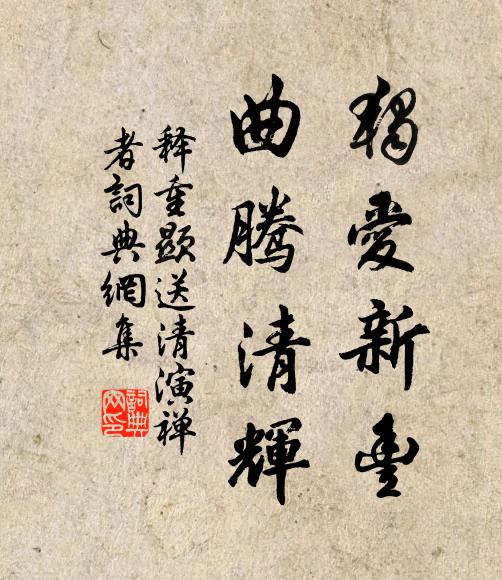 獨愛新豐
曲騰清輝
釋重顯送清演禅
者詞典網集
詞典
网印